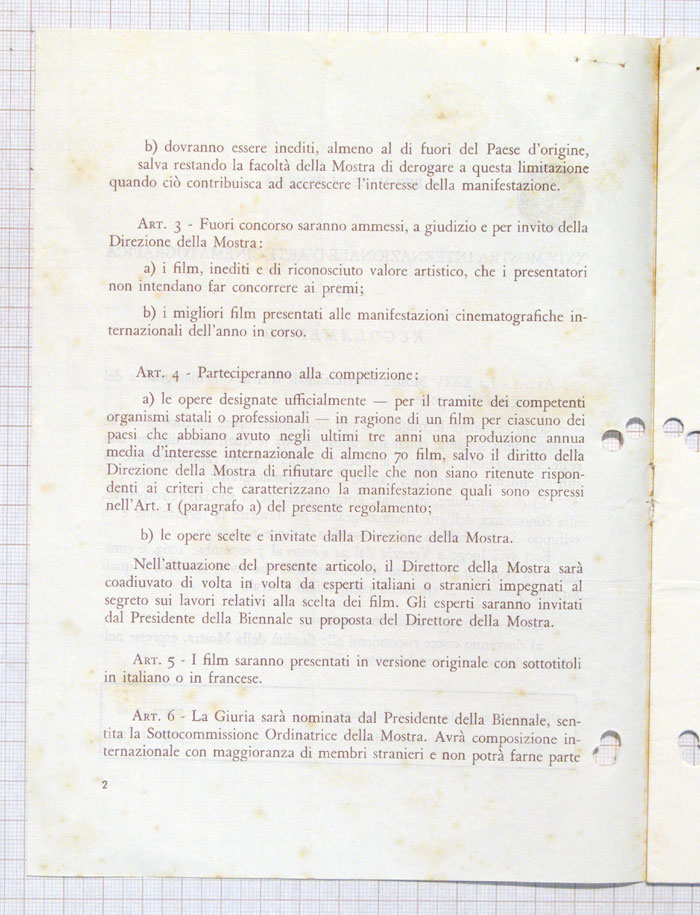 b) dovranno essere inediti, almeno al di fuori del Paese d'origine,
salva restando la facoltà della Mostra di derogare a questa limitazione
quando ciò contribuisca ad accrescere l'interesse della manifestazione.
ART. 3 - Fuori concorso saranno ammessi, a giudizio e per invito della
Direzione della Mostra:
a) i film, inediti e di riconosciuto valore artistico, che i presentatori
non intendano far concorrere ai premi;
b) i migliori film presentati alle manifestazioni cinematografiche in-
ternazionali dell'anno in corso.
ART. 4 - Parteciperanno alla competizione:
a) le opere designate ufficialmente — per il tramite dei competenti
organismi statali o professionali — in ragione di un film per ciascuno dei
paesi che abbiano avuto negli ultimi tre anni una produzione annua
media d'interesse internazionale di almeno 70 film, salvo il diritto della
Direzione della Mostra di rifiutare quelle che non siano ritenute rispon-
denti ai criteri che caratterizzano la manifestazione quali sono espressi
nell'Art. 1 (paragrafo a) del presente regolamento;
b) le opere scelte e invitate dalla Direzione della Mostra.
Nell'attuazione del presente articolo, il Direttore della Mostra sarà
coadiuvato di volta in volta da esperti italiani o stranieri impegnati al
segreto sui lavori relativi alla scelta dei film. Gli esperti saranno invitati
dal Presidente della Biennale su proposta del Direttore della Mostra.
ART. 5 - I film saranno presentati in versione originale con sottotitoli
in italiano o in francese.
ART. 6 - La Giuria sarà nominata dal Presidente della Biennale, sen-
tita la Sottocommissione Ordinatrice della Mostra. Avrà composizione in-
ternazionale con maggioranza di membri stranieri e non potrà farne parte
2